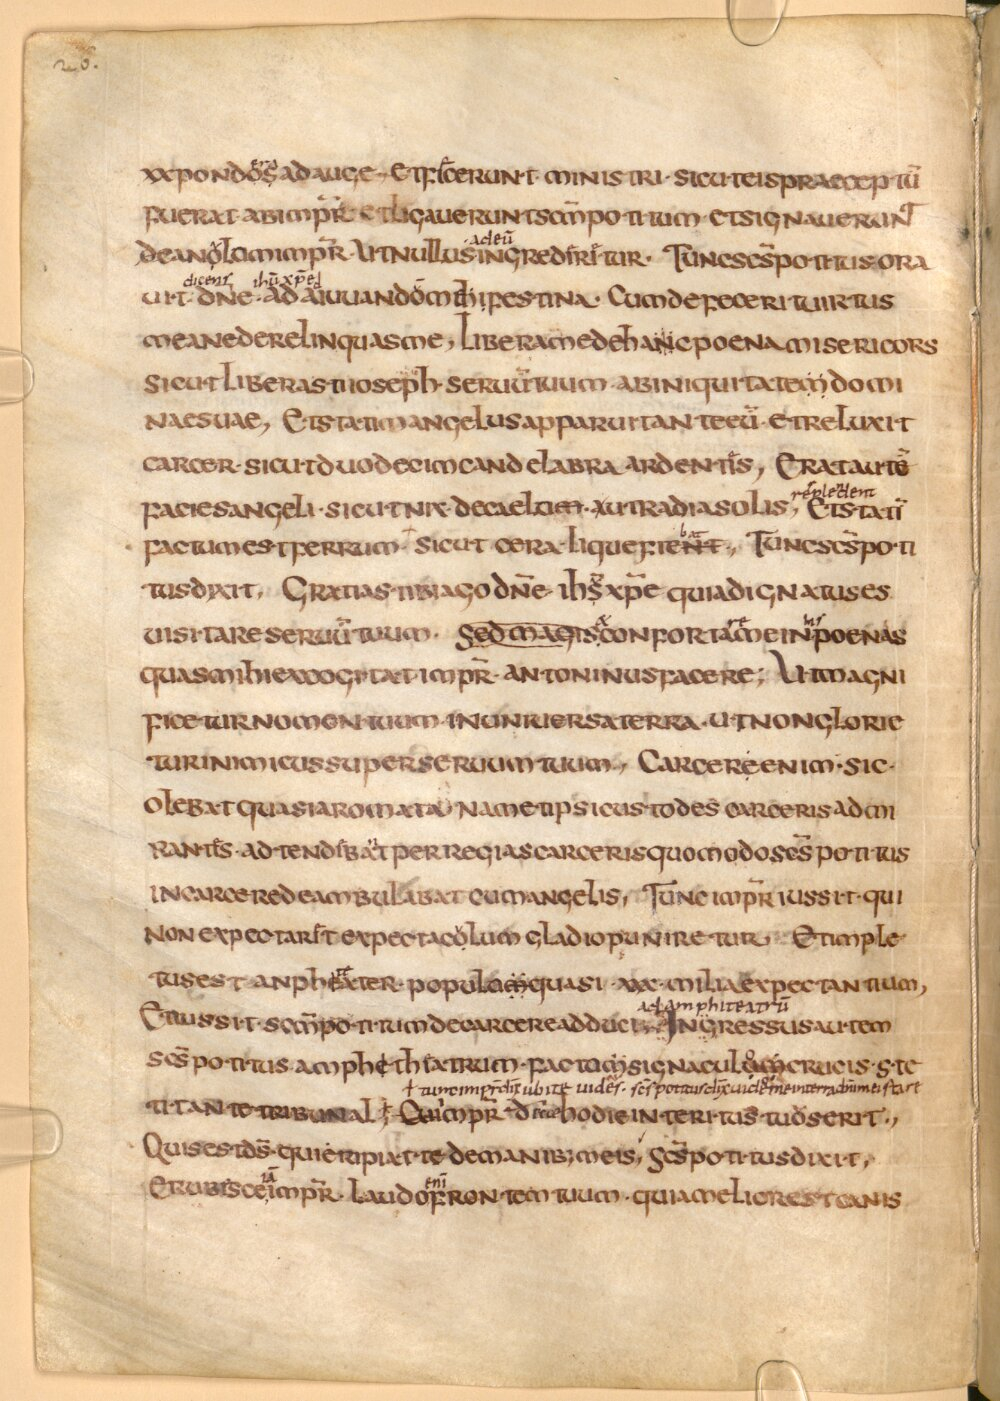 20.
xxpondos ad auge. et fecerunt ministri. sicut eis praeceptū
fuerat ab imp̄r. et ligauerunt sc̄m potitum. et signauerunt
de anolo imp̄r. ut nullus ad eū ingrediretur. Tunc sc̄s potitus ora
uit dicens dn̄e ih̄u xp̄e d̄ ad aiuuandōm mihi festina. Cum defecerit uirtus
mea ne derelinquas me, Libera me de hanc poena misericors
sicut liberasti ioseph. seruū tuum. ab iniquitatem domi
nae suae, Et statim angelus apparuit ante eū. et reluxit
carcer. sicut duodecim candelabra ardentis, Erat autē
facies angeli. sicut nix. de caelum. aut radia solis, Et statī
factum est ferrum. sicut cera. liquefient, Tunc sc̄s poti
tus dixit, Gratias tibi ago dn̄e. ih̄s xp̄e quia dignatus es
uisitare seruū tuum. sed magis confortare me in his poenas
quas mihi excogitat imp̄r. antoninus facere; Ut magni
ficetur nomen tuum. in uniuersa terra. ut non glorie
tur inimicus super seruum tuum, Carcere enim. sic.
olebat quasi aromata. nam et ipsi custodes carceris admi
rantes. adtendebat per regias carceris quomodo sc̄s potitus
in carcere deambulabat cum angelis, Tunc imp̄r iussit. qui
non expectaret expectacolum gladio puniretur. Et imple
tus est anpheater. populum quasi. xxx. milia expectantium,
ad amphiteatrū
Et iussit. sc̄m potitum de carcere adduci. Ingressus autem
sc̄s potitus amphetheatrum. factum signaculum crucis. ste
tit ante tribunal, Cui imp̄r d̄ hodie interitus tuos erit.,
Quis est d̄s. qui eripiat te de manib; meis, Sc̄s potitus dixit,
Erubisce iā imp̄r. laudo enī frontem tuum. quia melior est canis